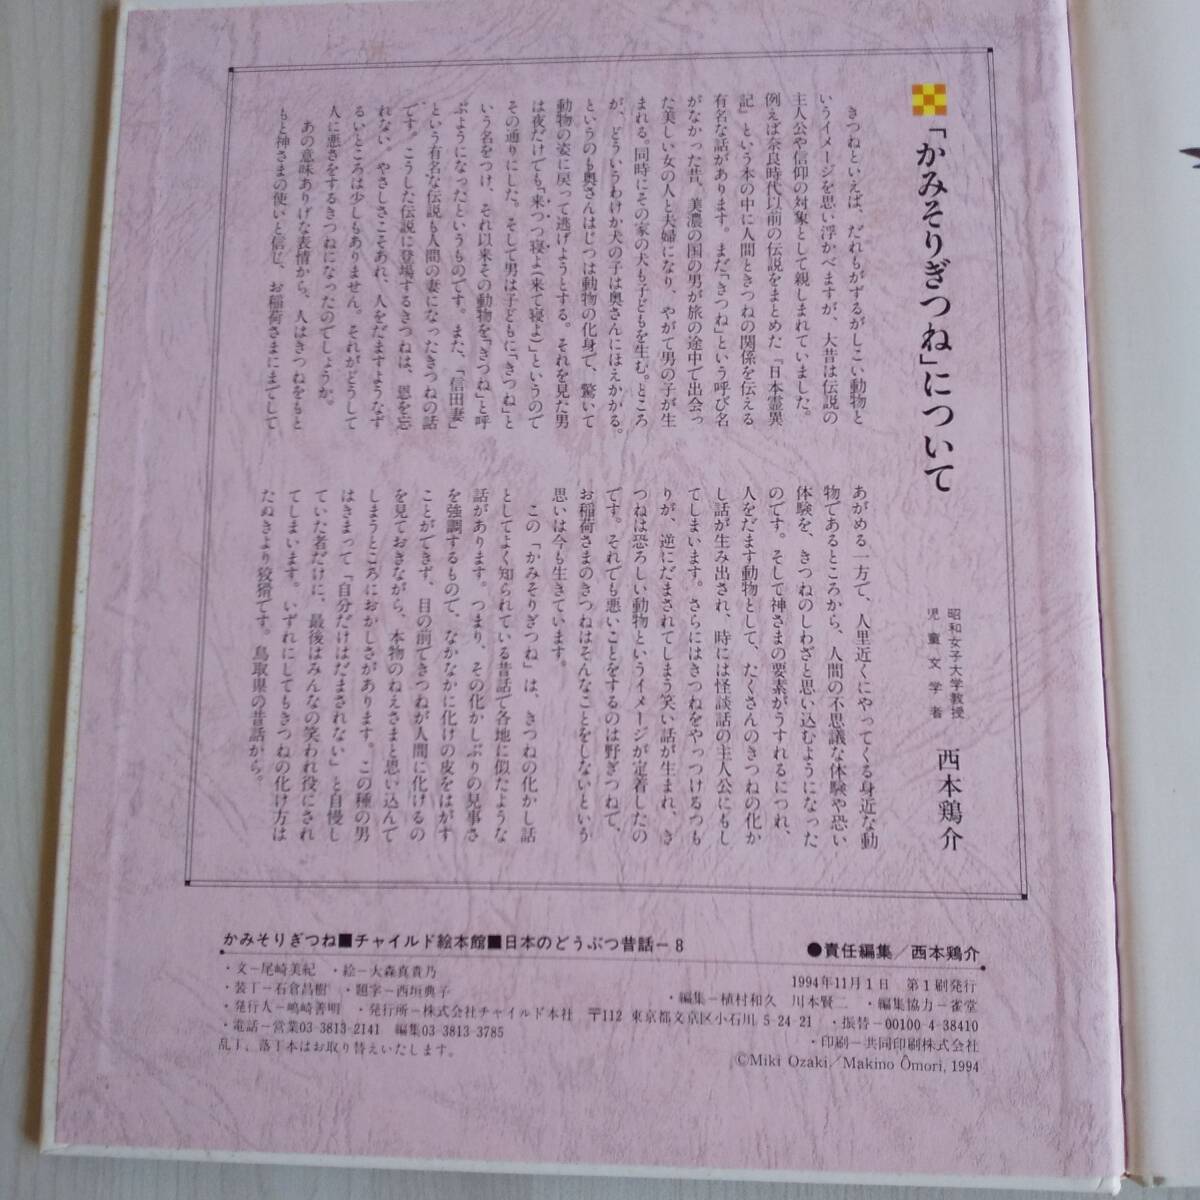 「かみそりぎつね」について
昭和女子大学教授
児童文学者
西本鶏介
きつねといえば、だれもがずるがしこい動物と
いうイメージを思い浮かべますが、大昔は伝説の
主人公や信仰の対象として親しまれていました。
例えば奈良時代以前の伝説をまとめた「日本霊異
記」という本の中に人間ときつねの関係を伝える
有名な話があります。まだ「きつね」という呼び名
がなかった昔、美濃の国の男が旅の途中で出会っ
た美しい女の人と夫婦になり、やがて男の子が生
まれる。同時にその家の犬も子どもを生む。ところ
が、どういうわけか犬の子は奥さんにほえかかる。
というのも奥さんはじつは動物の化身で、驚いて
動物の姿に戻って逃げようとする。それを見た男
は夜だけでも「来つ寝よ(来て寝よ)」というので
その通りにした。そして男は子どもに「きつね」と
いう名をつけ、それ以来その動物を「きつね」と呼
ぶようになったというものです。また、「信田妻」
という有名な伝説も人間の妻になったきつねの話
です。こうした伝説に登場するきつねは、恩を忘
れない、やさしさこそあれ、人をだますようなず
るいところは少しもありません。それがどうして
人に悪さをするきつねになったのでしょうか。
あの意味ありげな表情から、人はきつねをもと
もと神さまの使いと信じ、お稲荷さまにまでして
あがめる一方で、人里近くにやってくる身近な動
物であるところから、人間の不思議な体験や恐い
体験を、きつねのしわざと思い込むようになった
のです。そして神さまの要素がうすれるにつれ、
人をだます動物として、たくさんのきつねの化か
し話が生み出され、時には怪談話の主人公にもし
てしまいます。さらにはきつねをやっつけるつも
りが、逆にだまされてしまう笑い話が生まれ、き
つねは恐ろしい動物というイメージが定着したの
です。それでも悪いことをするのは野ぎつねで、
お稲荷さまのきつねはそんなことをしないという
思いは今も生きています。
この「かみそりぎつね」は、きつねの化かし話
としてよく知られている昔話で各地に似たような
話があります。つまり、その化かしぶりの見事さ
を強調するもので、なかなかに化けの皮をはがす
ことができず、目の前できつねが人間に化けるの
を見ておきながら、本物のねえさまと思い込んで
しまうところにおかしさがあります。この種の男
はきまって「自分だけはだまされない」と自慢し
ていた者だけに、最後はみんなの笑われ役にされ
てしまいます。いずれにしてもきつねの化け方は
たぬきより狡猾です。鳥取県の昔話から。
かみそりぎつね■チャイルド絵本館■日本のどうぶつ昔話ー8
●責任編集／西本鶏介
・文－尾崎美紀 ・絵－大森真貴乃
1994年11月1日 第1刷発行
・装丁－石倉昌樹 ・題字－西垣典子
・編集－植村和久 川本賢二 ・編集協力－雀堂
・発行人－嶋崎善明 ・発行所－株式会社チャイルド本社 〒112 東京都文京区小石川 5-24-21 ・振替－00100-4-38410
・電話－営業03-3813-2141 編集03-3813-3785
・印刷－共同印刷株式会社
乱丁、落丁本はお取り替えいたします。
©Miki Ozaki／Makino Ômori, 1994